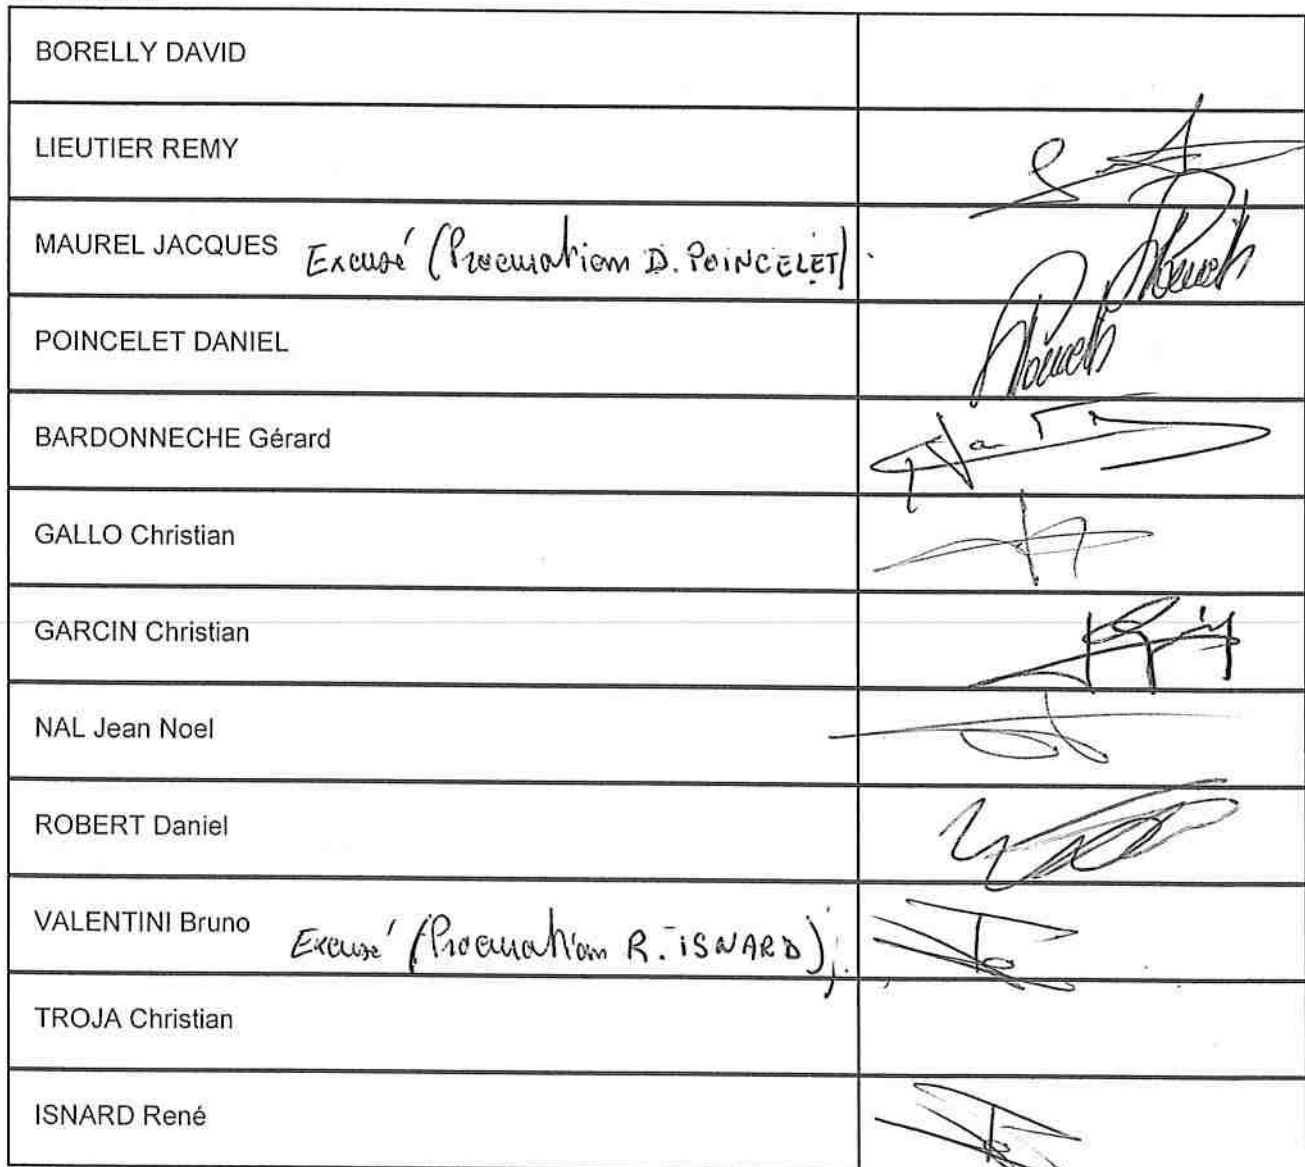 BORELLY DAVID
LIEUTIER REMY
MAUREL JACQUES Excusé (Procuration D. POINCELET).
POINCELET DANIEL
BARDONNECHE Gérard
GALLO Christian
GARCIN Christian
NAL Jean Noel
ROBERT Daniel
VALENTINI Bruno Excusé (Procuration R. ISNARD);
TROJA Christian
ISNARD René